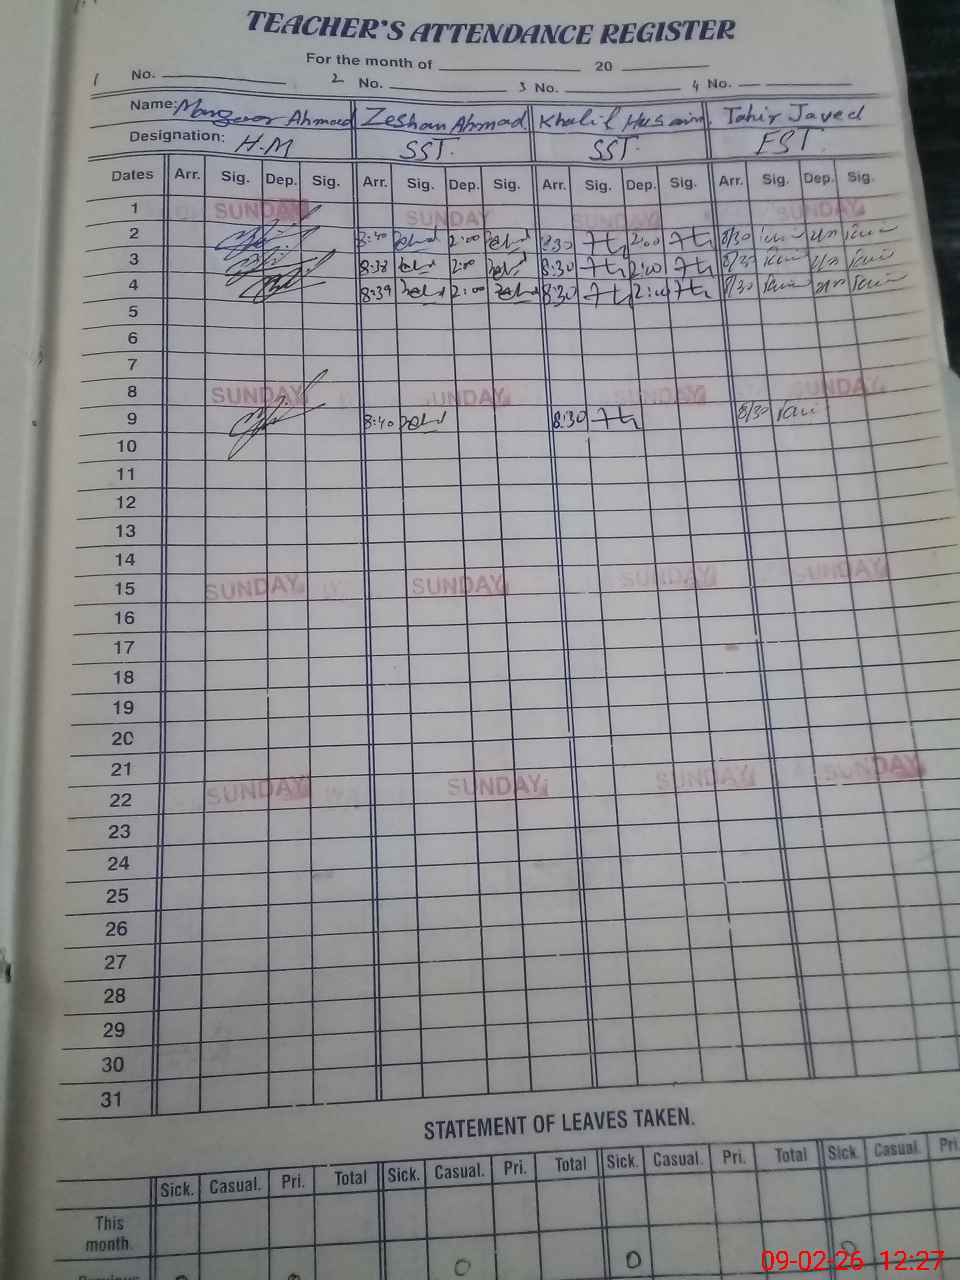 TEACHER'S ATTENDANCE REGISTER
For the month of 20
1 No. 2 No. 3 No. 4 No.
Name: Manzoor Ahmad Zeshan Ahmad Khalil Hussain Tahir Javed
Designation: H.M SST. SST. EST.
Dates Arr. Sig. Dep. Sig. Arr. Sig. Dep. Sig. Arr. Sig. Dep. Sig. Arr. Sig. Dep. Sig.
1 SUNDAY SUNDAY SUNDAY SUNDAY
2 8:40 2:00 8:30 2:00 8/30
3 8:38 2:00 8:30 2:00 8/30
4 8:39 2:00 8:30 2:00 8/30
5
6
7
8 SUNDAY SUNDAY SUNDAY SUNDAY
9 8:40 8:30 8/30
10
11
12
13
14
15 SUNDAY SUNDAY SUNDAY SUNDAY
16
17
18
19
20
21
22 SUNDAY SUNDAY SUNDAY SUNDAY
23
24
25
26
27
28
29
30
31
STATEMENT OF LEAVES TAKEN.
Sick. Casual. Pri. Total Sick. Casual. Pri. Total Sick. Casual. Pri. Total Sick. Casual. Pri.
This
month.
0 0
09-02-26 12:27